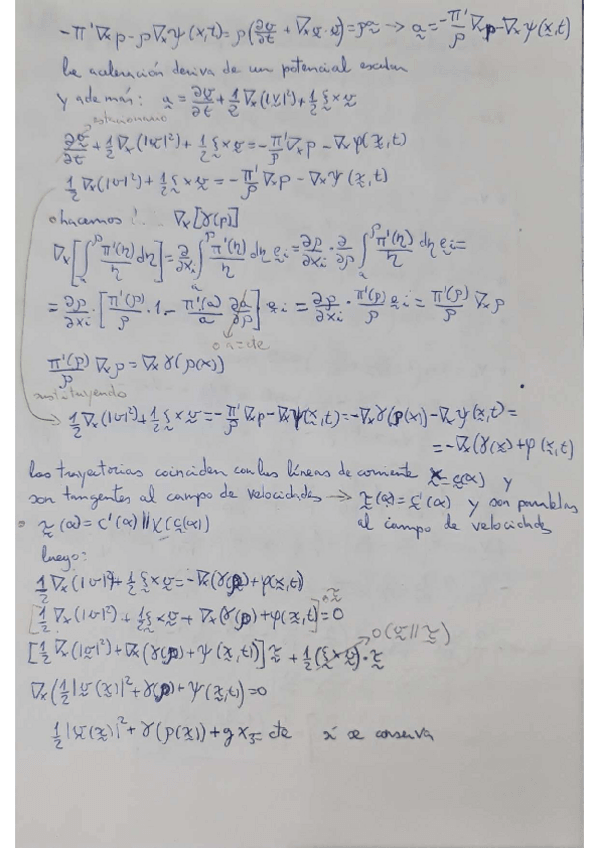 -π'∇ₓρ - ρ∇ₓψ(x,t) = ρ(∂v/∂t + ∇ₓv·v) = ρa → a = -π'/ρ ∇ₓρ - ∇ₓψ(x,t)
la aceleración deriva de un potencial escalar
y además: a = ∂v/∂t + 1/2 ∇ₓ(|v|²) + 1/2 ξ×v
estacionario
∂v/∂t + 1/2 ∇ₓ(|v|²) + 1/2 ξ×v = -π'/ρ ∇ₓρ - ∇ψ(x,t)
1/2 ∇ₓ(|v|²) + 1/2 ξ×v = -π'/ρ ∇ₓρ - ∇ₓψ(x,t)
hacemos ∇ₓ[γ(ρ)]
∇ₓ[∫ₐ^ρ π'(η)/η dη] = ∂/∂xi ∫ₐ^ρ π'(η)/η dη ei = ∂ρ/∂xi · ∂/∂ρ ∫ₐ^ρ π'(η)/η dη ei =
= ∂ρ/∂xi · [π'(ρ)/ρ · 1 - π'(a)/a ∂a/∂ρ] ei = ∂ρ/∂xi · π'(ρ)/ρ ei = π'(ρ)/ρ ∇ₓρ
0 a=cte
π'(ρ)/ρ ∇ₓρ = ∇ₓγ(ρ(x))
sustituyendo
1/2 ∇ₓ(|v|²) + 1/2 ξ×v = -π'/ρ ∇ₓρ - ∇ₓψ(x,t) = -∇ₓγ(ρ(x)) - ∇ₓψ(x,t) =
= -∇ₓ(γ(x) + ψ(x,t)
las trayectorias coinciden con las líneas de corriente x = c(α) y
son tangentes al campo de velocidades → τ(α) = c'(α) y son paralelas
τ(α) = c'(α) // v(c(α)) al campo de velocidades
luego:
1/2 ∇ₓ(|v|²) + 1/2 ξ×v = -∇ₓ(γ(ρ) + ψ(x,t)
[1/2 ∇ₓ(|v|²) + 1/2 ξ×v + ∇ₓ(γ(ρ) + ψ(x,t)]·τ = 0
[1/2 ∇ₓ(|v|²) + ∇ₓ(γ(ρ) + ψ(x,t))]·τ + 1/2 (ξ×v)·τ 0 (v//τ)
∇ₓ(1/2 |v(x)|² + γ(ρ) + ψ(x,t)) = 0
1/2 |v(x)|² + γ(ρ(x)) + g x₃ = cte sí se conserva